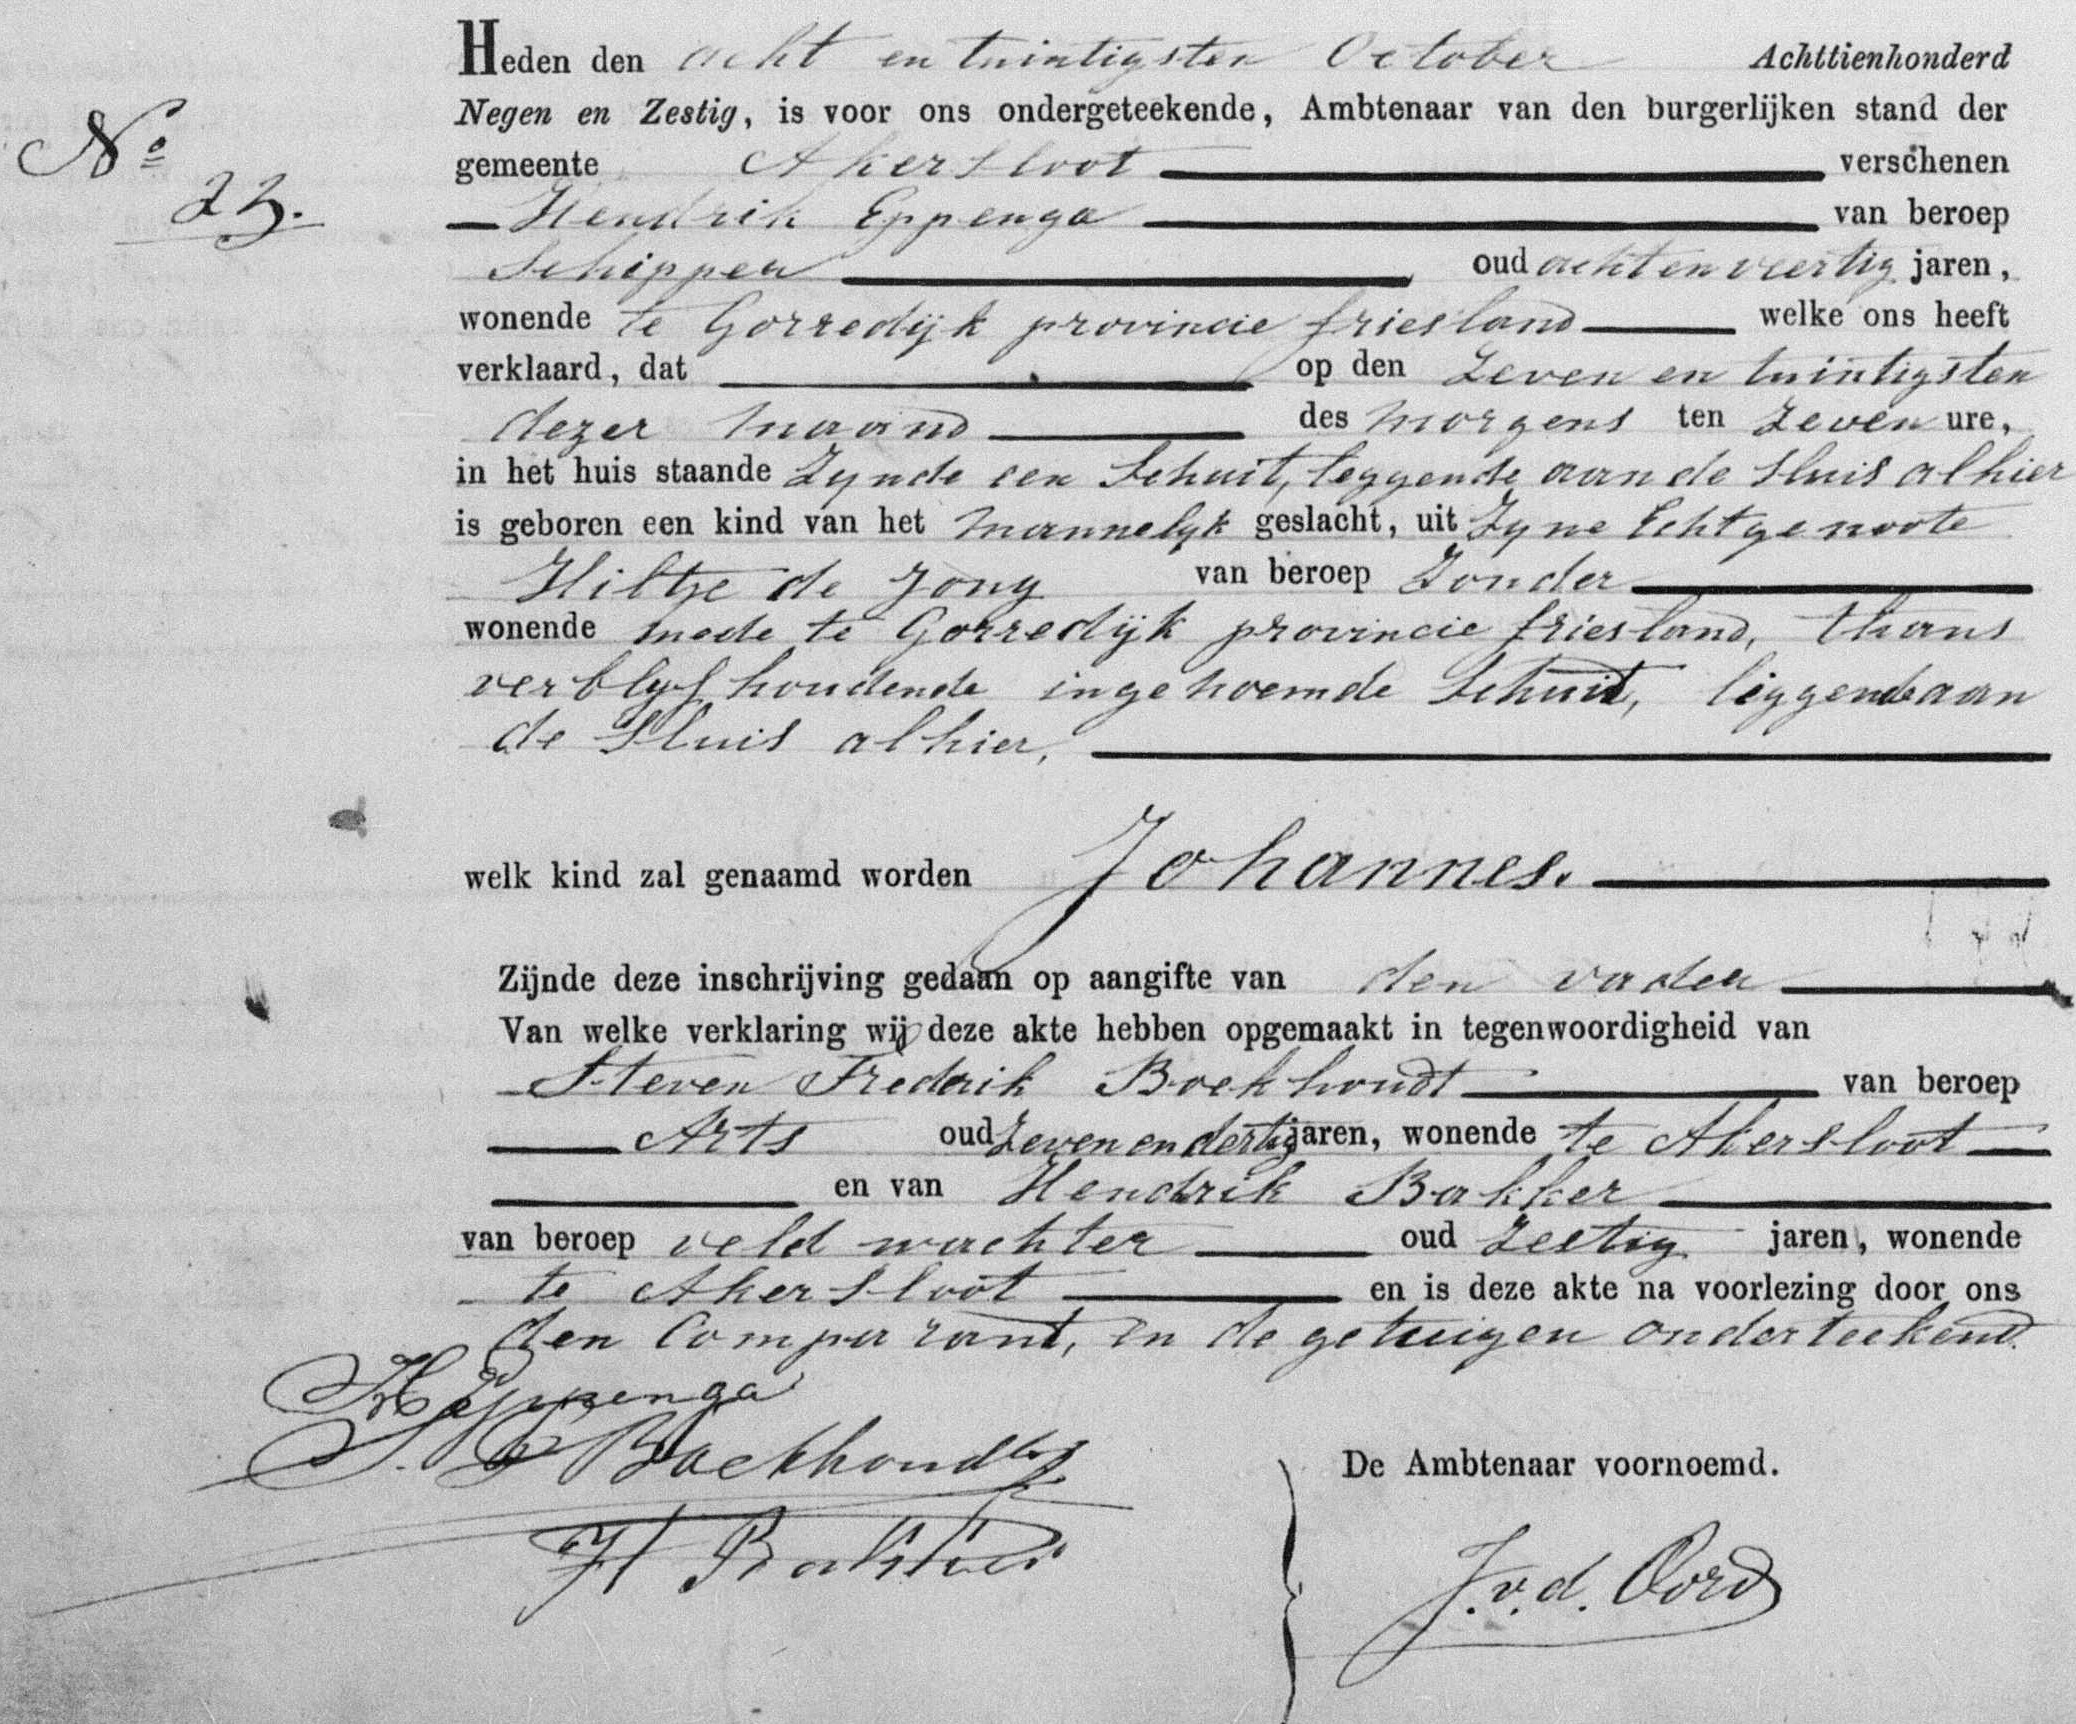 Heden den acht en twintigsten October Achttienhonderd
Negen en Zestig, is voor ons ondergeteekende, Ambtenaar van den burgerlijken stand der
gemeente Akersloot verschenen
Hendrik Eppenga van beroep
Schipper oud acht en veertig jaren,
wonende te Gorredijk provincie friesland welke ons heeft
verklaard, dat op den Zeven en twintigsten
dezer maand des morgens ten Zeven ure,
in het huis staande Zynde een Schuit, leggende aan de Sluis alhier
is geboren een kind van het mannelyk geslacht, uit Zyne Echtgenoote
Hiltje de Jong van beroep Zonder
wonende mede te Gorredijk provincie friesland, thans
verblyf houdende in genoemde Schuit, liggende aan
de Sluis alhier,
welk kind zal genaamd worden Johannes.
Zijnde deze inschrijving gedaan op aangifte van den vader
Van welke verklaring wij deze akte hebben opgemaakt in tegenwoordigheid van
Steven Fredrik Boekhoudt van beroep
Arts oud Zeven en dertig jaren, wonende te Akersloot
en van Hendrik Bakker
van beroep veld wachter oud Zestig jaren, wonende
te Akersloot en is deze akte na voorlezing door ons
den Comparant, en de getuigen onderteekend.
No 23.
H Eppenga
S. F Boekhoudt
H Bakker
De Ambtenaar voornoemd.
J. v. d. Oord